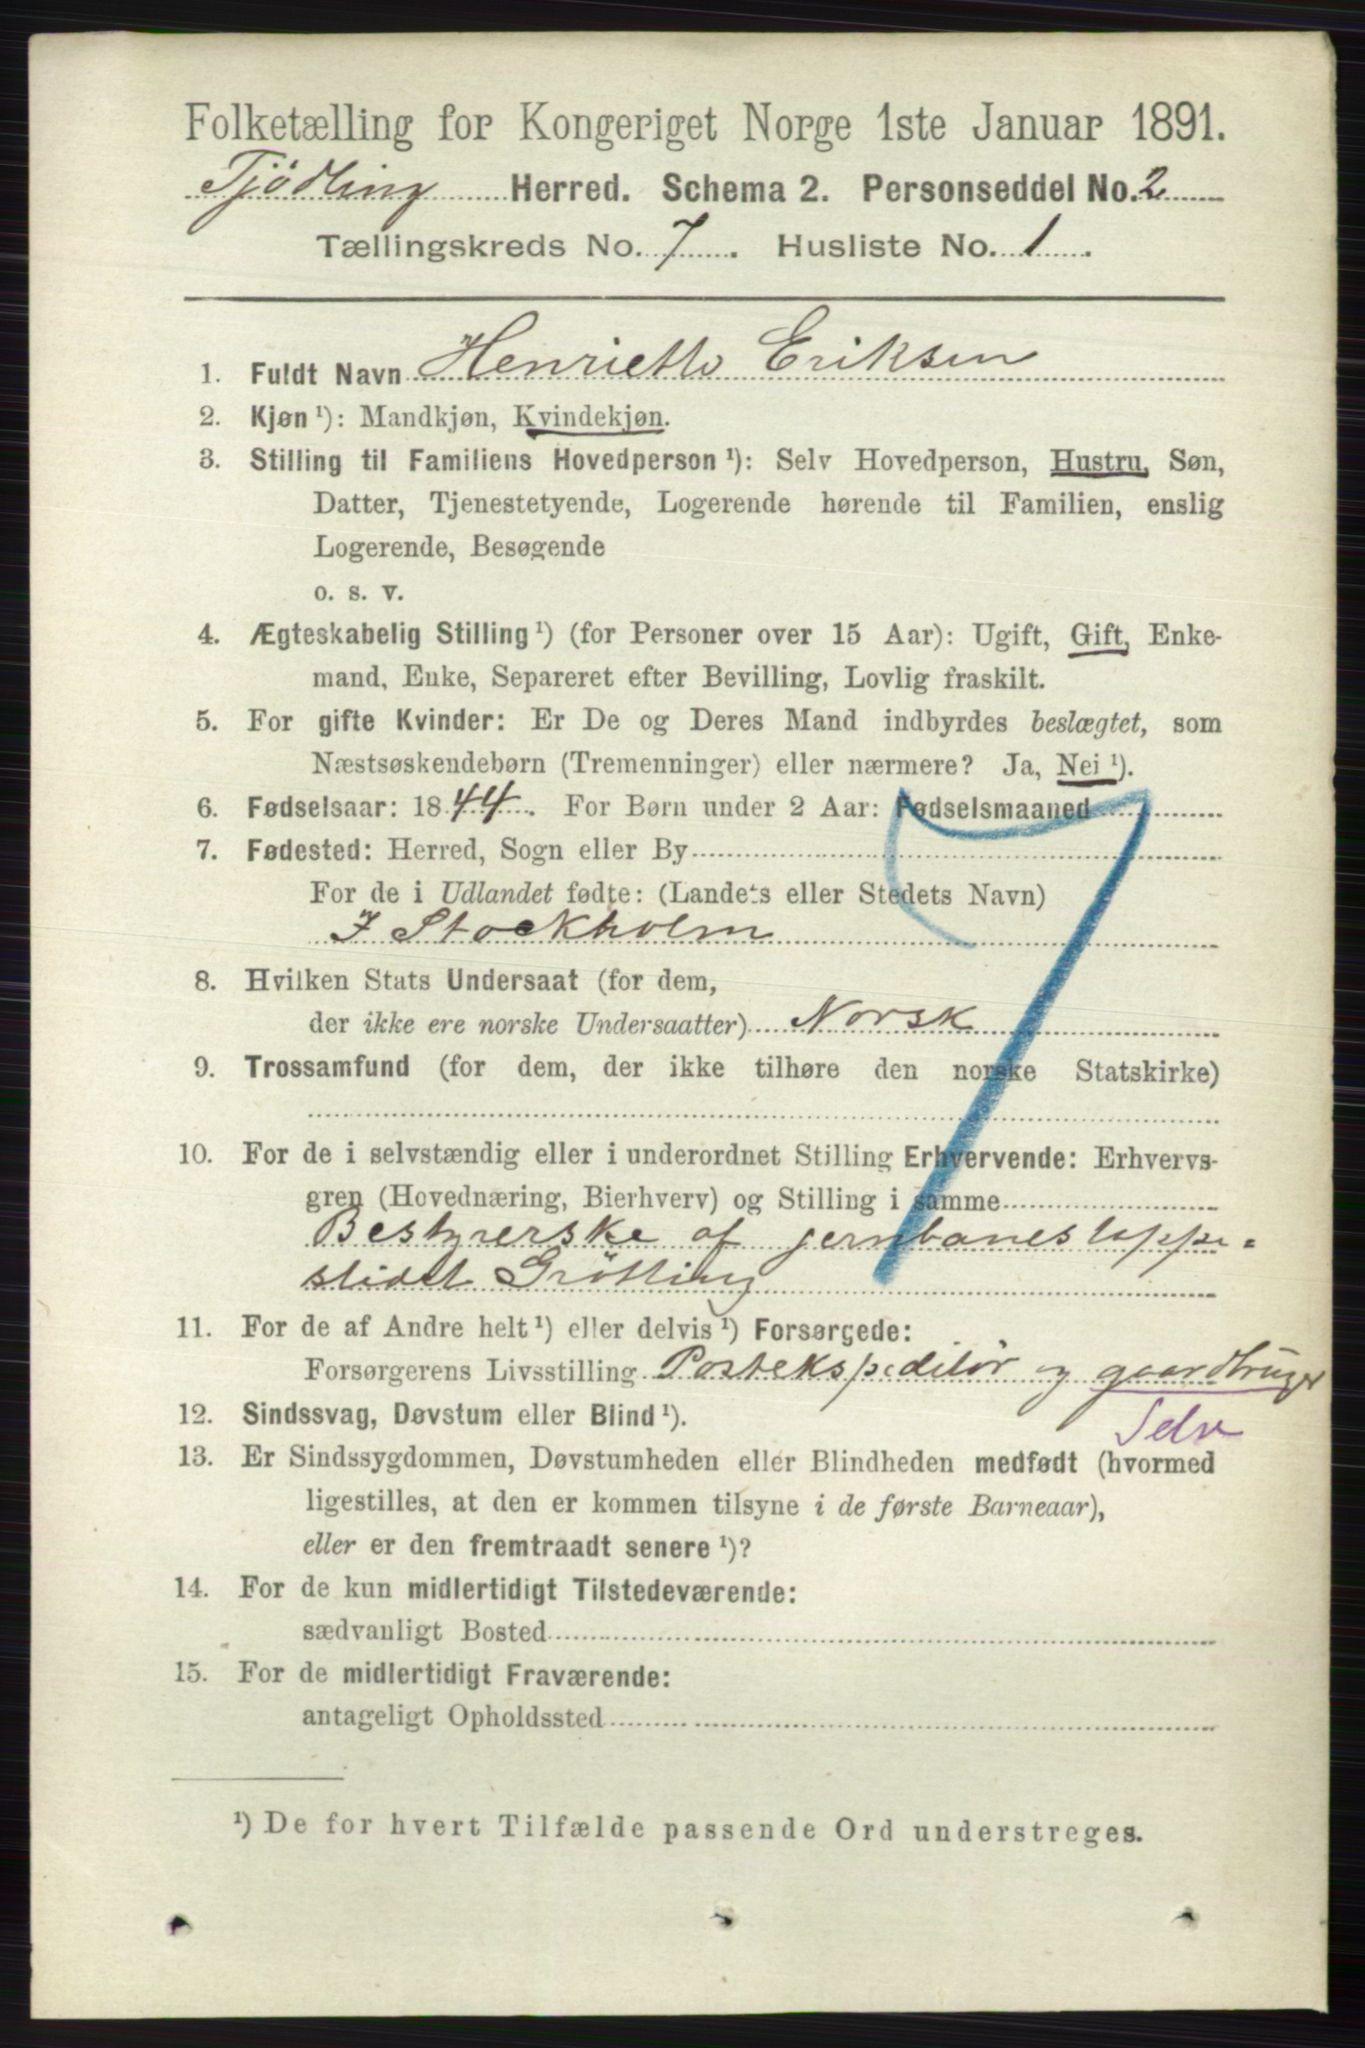 Folketælling for Kongeriget Norge 1ste Januar 1891.
Tjødling Herred. Schema 2. Personseddel No. 2
Tællingskreds No. 7. Husliste No. 1.
1. Fuldt Navn Henriette Eriksen
2. Kjøn ¹): Mandkjøn, Kvindekjøn.
3. Stilling til Familiens Hovedperson ¹): Selv Hovedperson, Hustru, Søn,
Datter, Tjenestetyende, Logerende hørende til Familien, enslig
Logerende, Besøgende
o. s. v.
4. Ægteskabelig Stilling ¹) (for Personer over 15 Aar): Ugift, Gift, Enke-
mand, Enke, Separeret efter Bevilling, Lovlig fraskilt.
5. For gifte Kvinder: Er De og Deres Mand indbyrdes beslægtet, som
Næstsøskendebørn (Tremenninger) eller nærmere? Ja, Nei ¹).
6. Fødselsaar: 1844. For Børn under 2 Aar: Fødselsmaaned
7. Fødested: Herred, Sogn eller By
For de i Udlandet fødte: (Landets eller Stedets Navn)
I Stockholm
8. Hvilken Stats Undersaat (for dem,
der ikke ere norske Undersaatter) Norsk
9. Trossamfund (for dem, der ikke tilhøre den norske Statskirke)
10. For de i selvstændig eller i underordnet Stilling Erhvervende: Erhvervs-
gren (Hovednæring, Bierhverv) og Stilling i samme
Bestyrerske af jernbanestoppe-
stidet Grötting
11. For de af Andre helt ¹) eller delvis ¹) Forsørgede:
Forsørgerens Livsstilling Postekspeditör og gaardbruger
Selv
12. Sindssvag, Døvstum eller Blind ¹).
13. Er Sindssygdommen, Døvstumheden eller Blindheden medfødt (hvormed
ligestilles, at den er kommen tilsyne i de første Barneaar),
eller er den fremtraadt senere ¹)?
14. For de kun midlertidigt Tilstedeværende:
sædvanligt Bosted
15. For de midlertidigt Fraværende:
antageligt Opholdssted
¹) De for hvert Tilfælde passende Ord understreges.
7